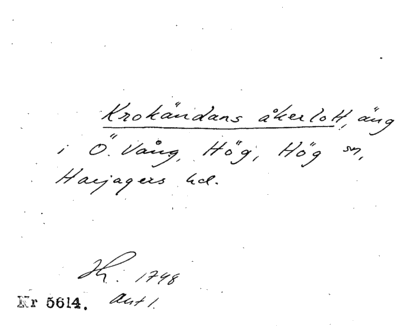 Krokändans åkerlott, äng
i Ö. Vång, Hög, Hög sn,
Harjagers hd.
Lh. 1748
Nr 5614. akt 1.